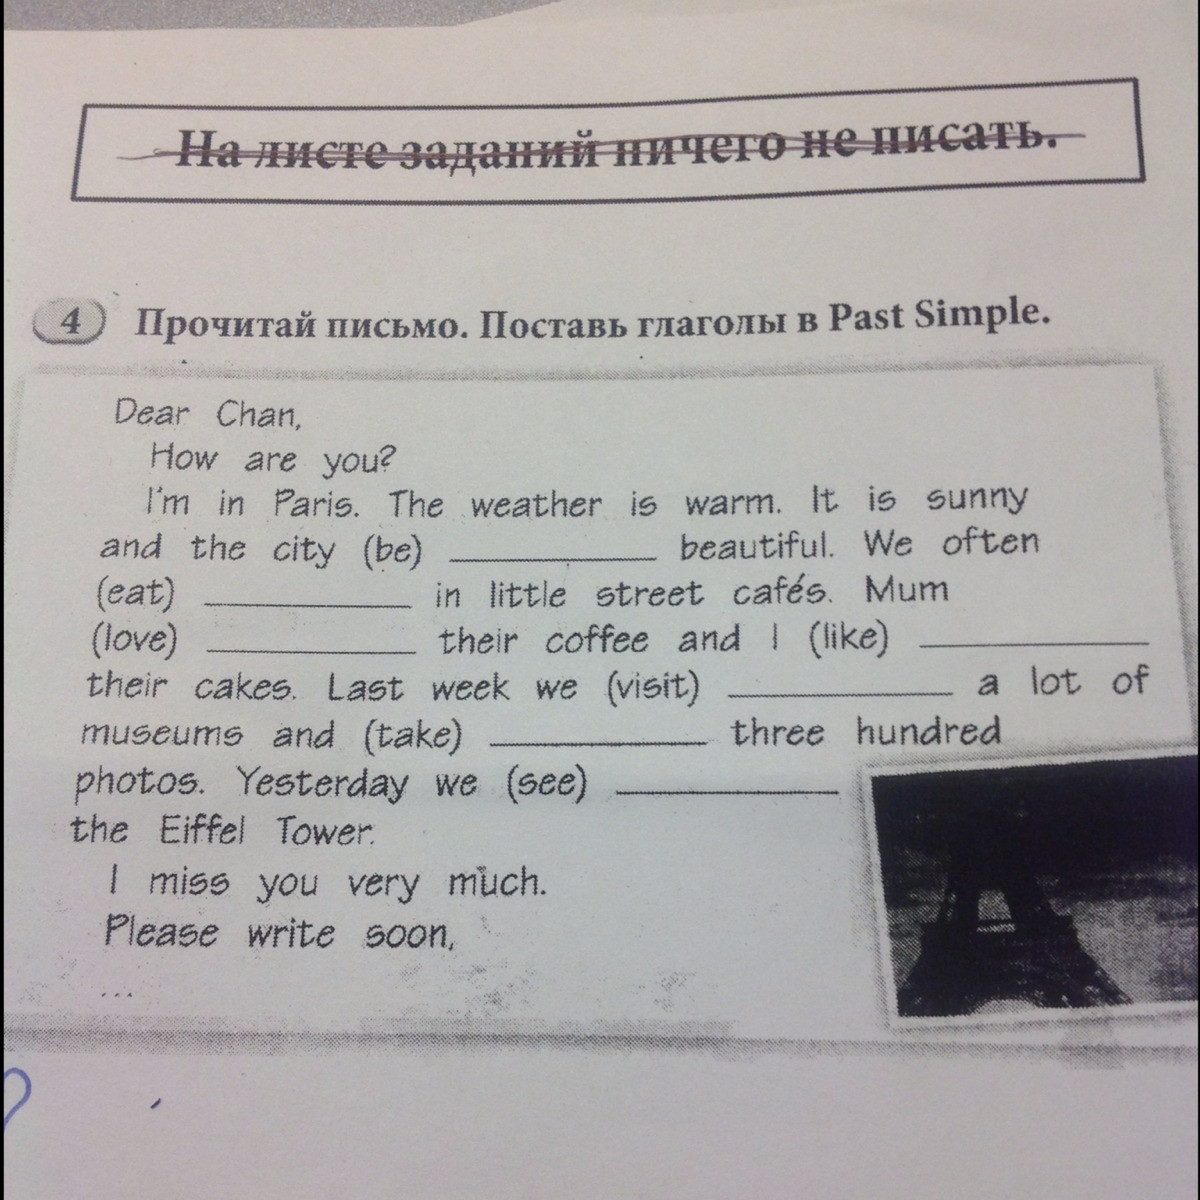 На листе заданий ничего не писать.
4 Прочитай письмо. Поставь глаголы в Past Simple.
Dear Chan,
How are you?
I'm in Paris. The weather is warm. It is sunny
and the city (be) __________ beautiful. We often
(eat) __________ in little street cafés. Mum
(love) __________ their coffee and I (like) __________
their cakes. Last week we (visit) __________ a lot of
museums and (take) __________ three hundred
photos. Yesterday we (see) __________
the Eiffel Tower.
I miss you very much.
Please write soon,
...